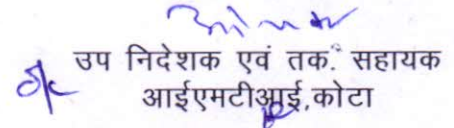 उप निदेशक एवं तक. सहायक
आईएमटीआई,कोटा